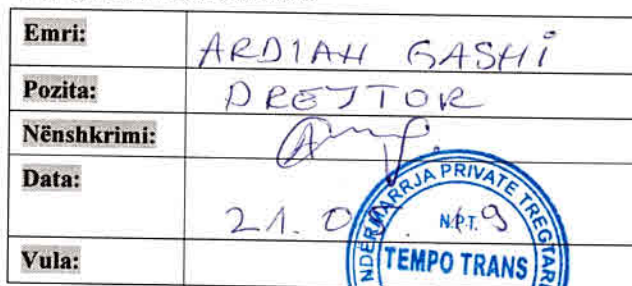 Emri: ARDIAH GASHI
Pozita: DREJTOR
Nënshkrimi:
Data: 21.0
Vula:
NDËRMARRJA PRIVATE TREGTARE
N.P.T.
TEMPO TRANS